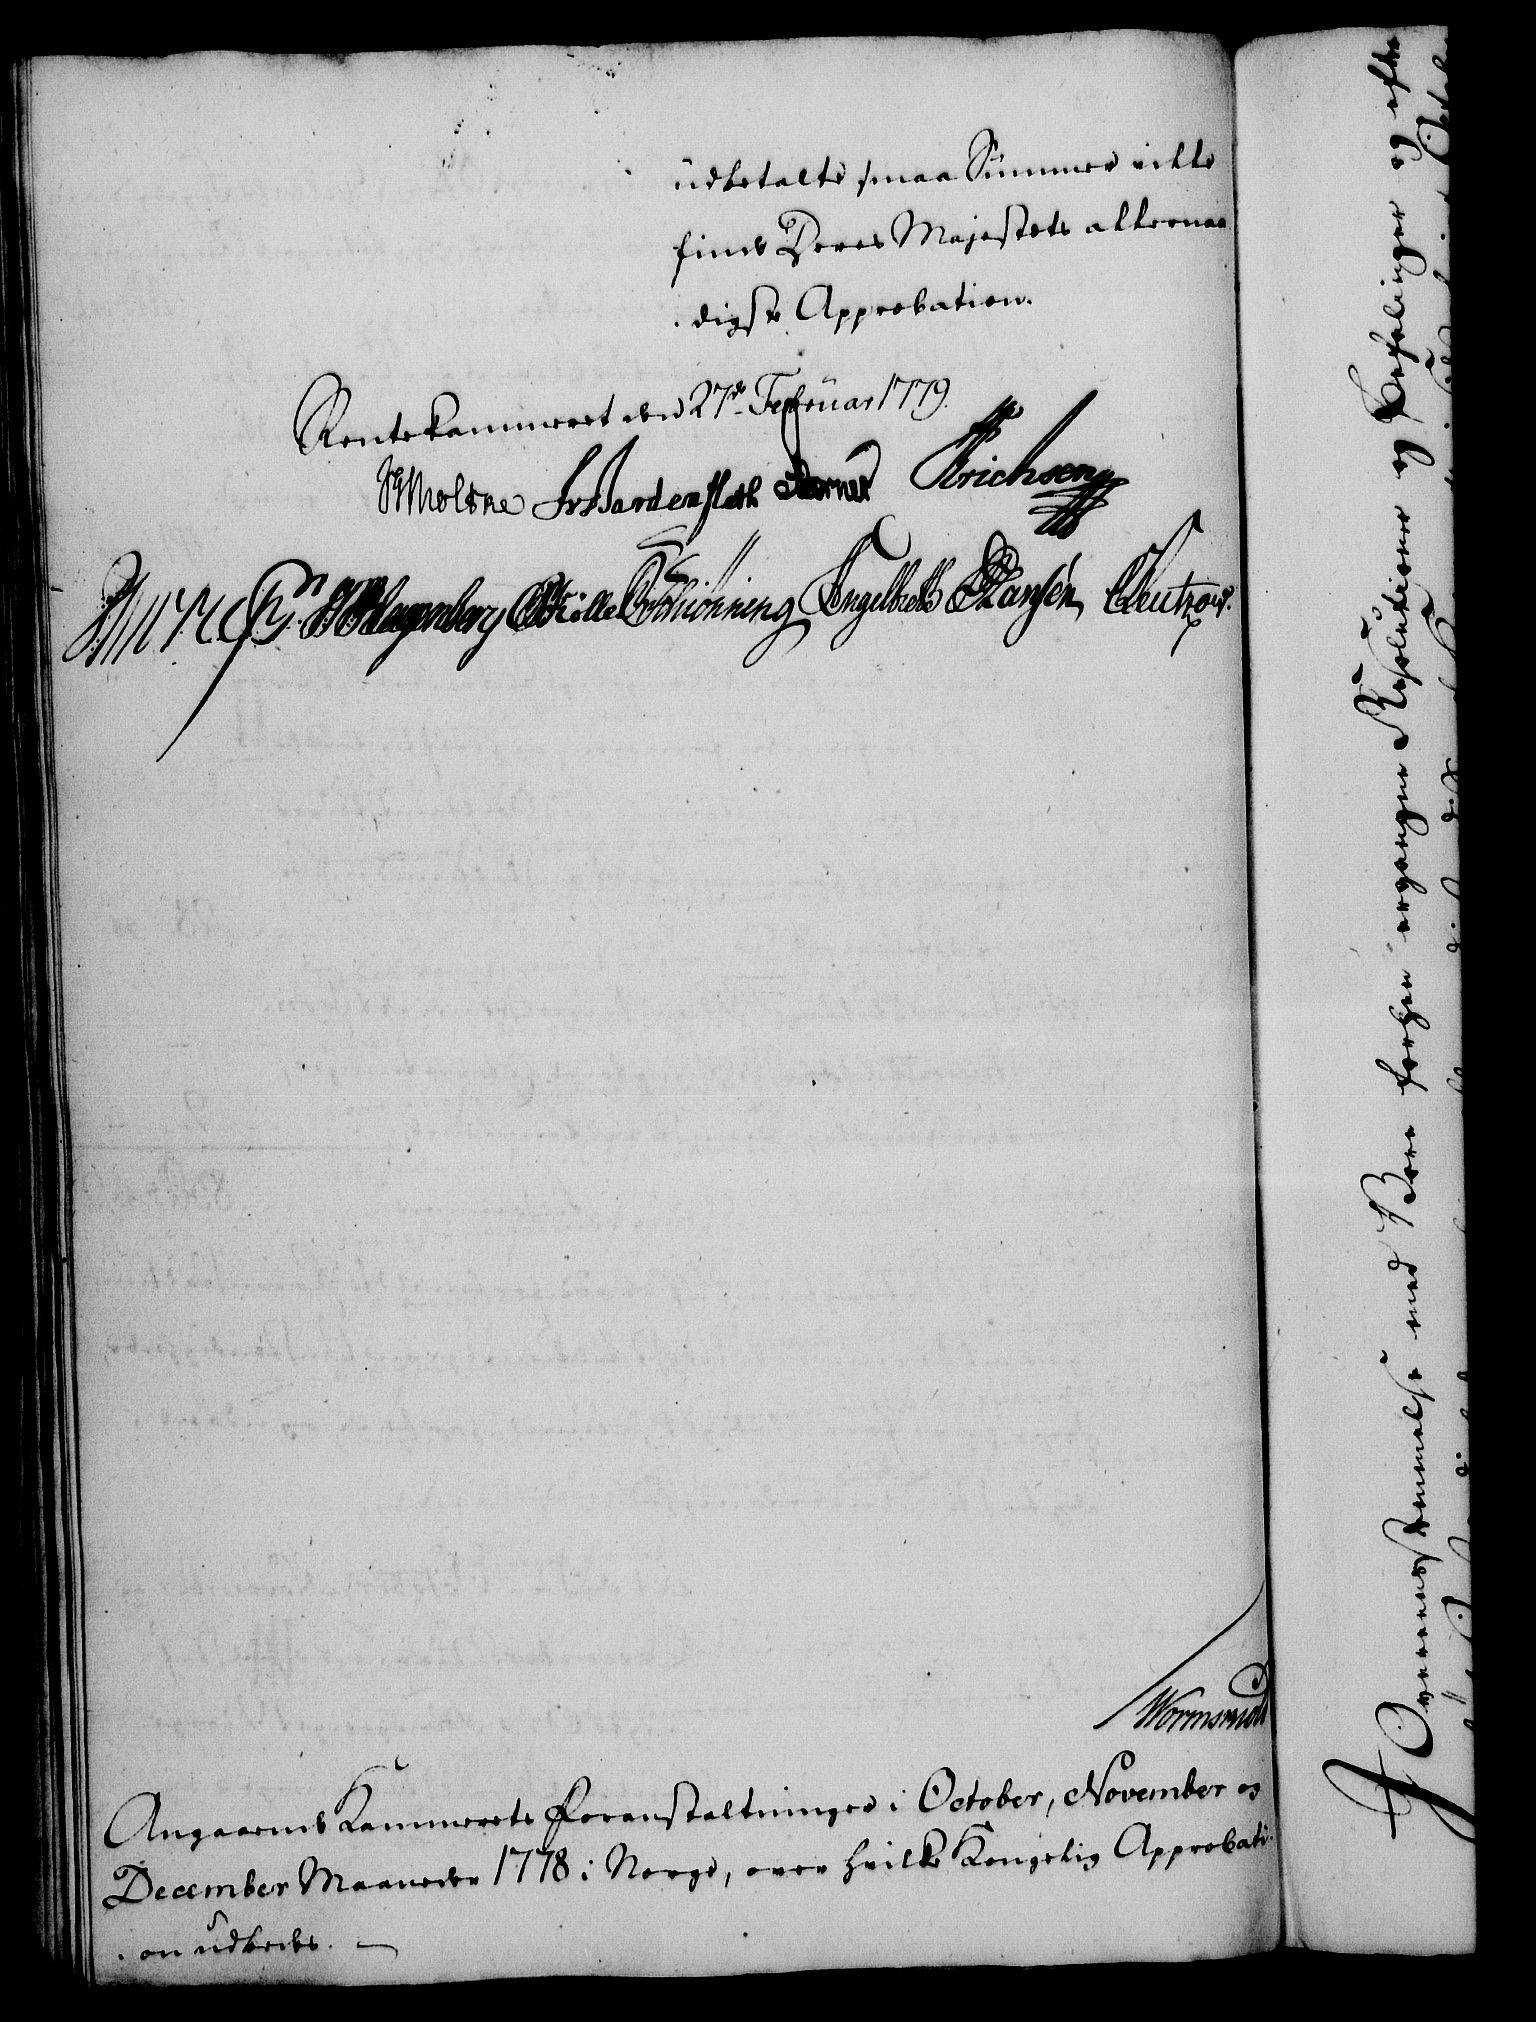 udbetalte smaa Summer ikke
finde Deres Majestets allernaa¬
digste Approbation.
Rentekammeret den 27de Februar 1779.
Moltke FrBardenfleth Berner Erichsen
Hagenberg Müller Schiønning Engelbreth Hansen Leutzow.
Wormskiold
Angaaende Kammerets Foranstaltninger i October, November og
December Maaneder 1778 i Norge, over hvilke Kongelig Approbati¬
on udbedes.
I Overeensstemmelse med Vore forhen ergangne Resolutioner og Befalinger og efter